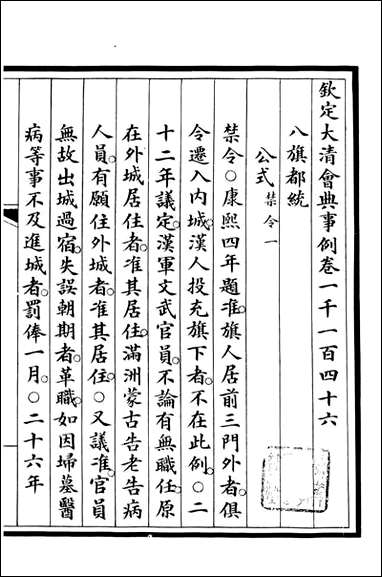 欽定大清會典事例卷一千一百四十六
八旗都統
公式禁令一
禁令○康熙四年題准旗人居前三門外者俱
令遷入內城漢人投充旗下者不在此例○二
十二年議定漢軍文武官員不論有無職任原
在外城居住者准其居住滿洲蒙古告老告病
人員有願住外城者准其居住○又議准官員
無故出城過宿失誤朝期者革職如因埽墓醫
病等事不及進城者罰俸一月○二十六年